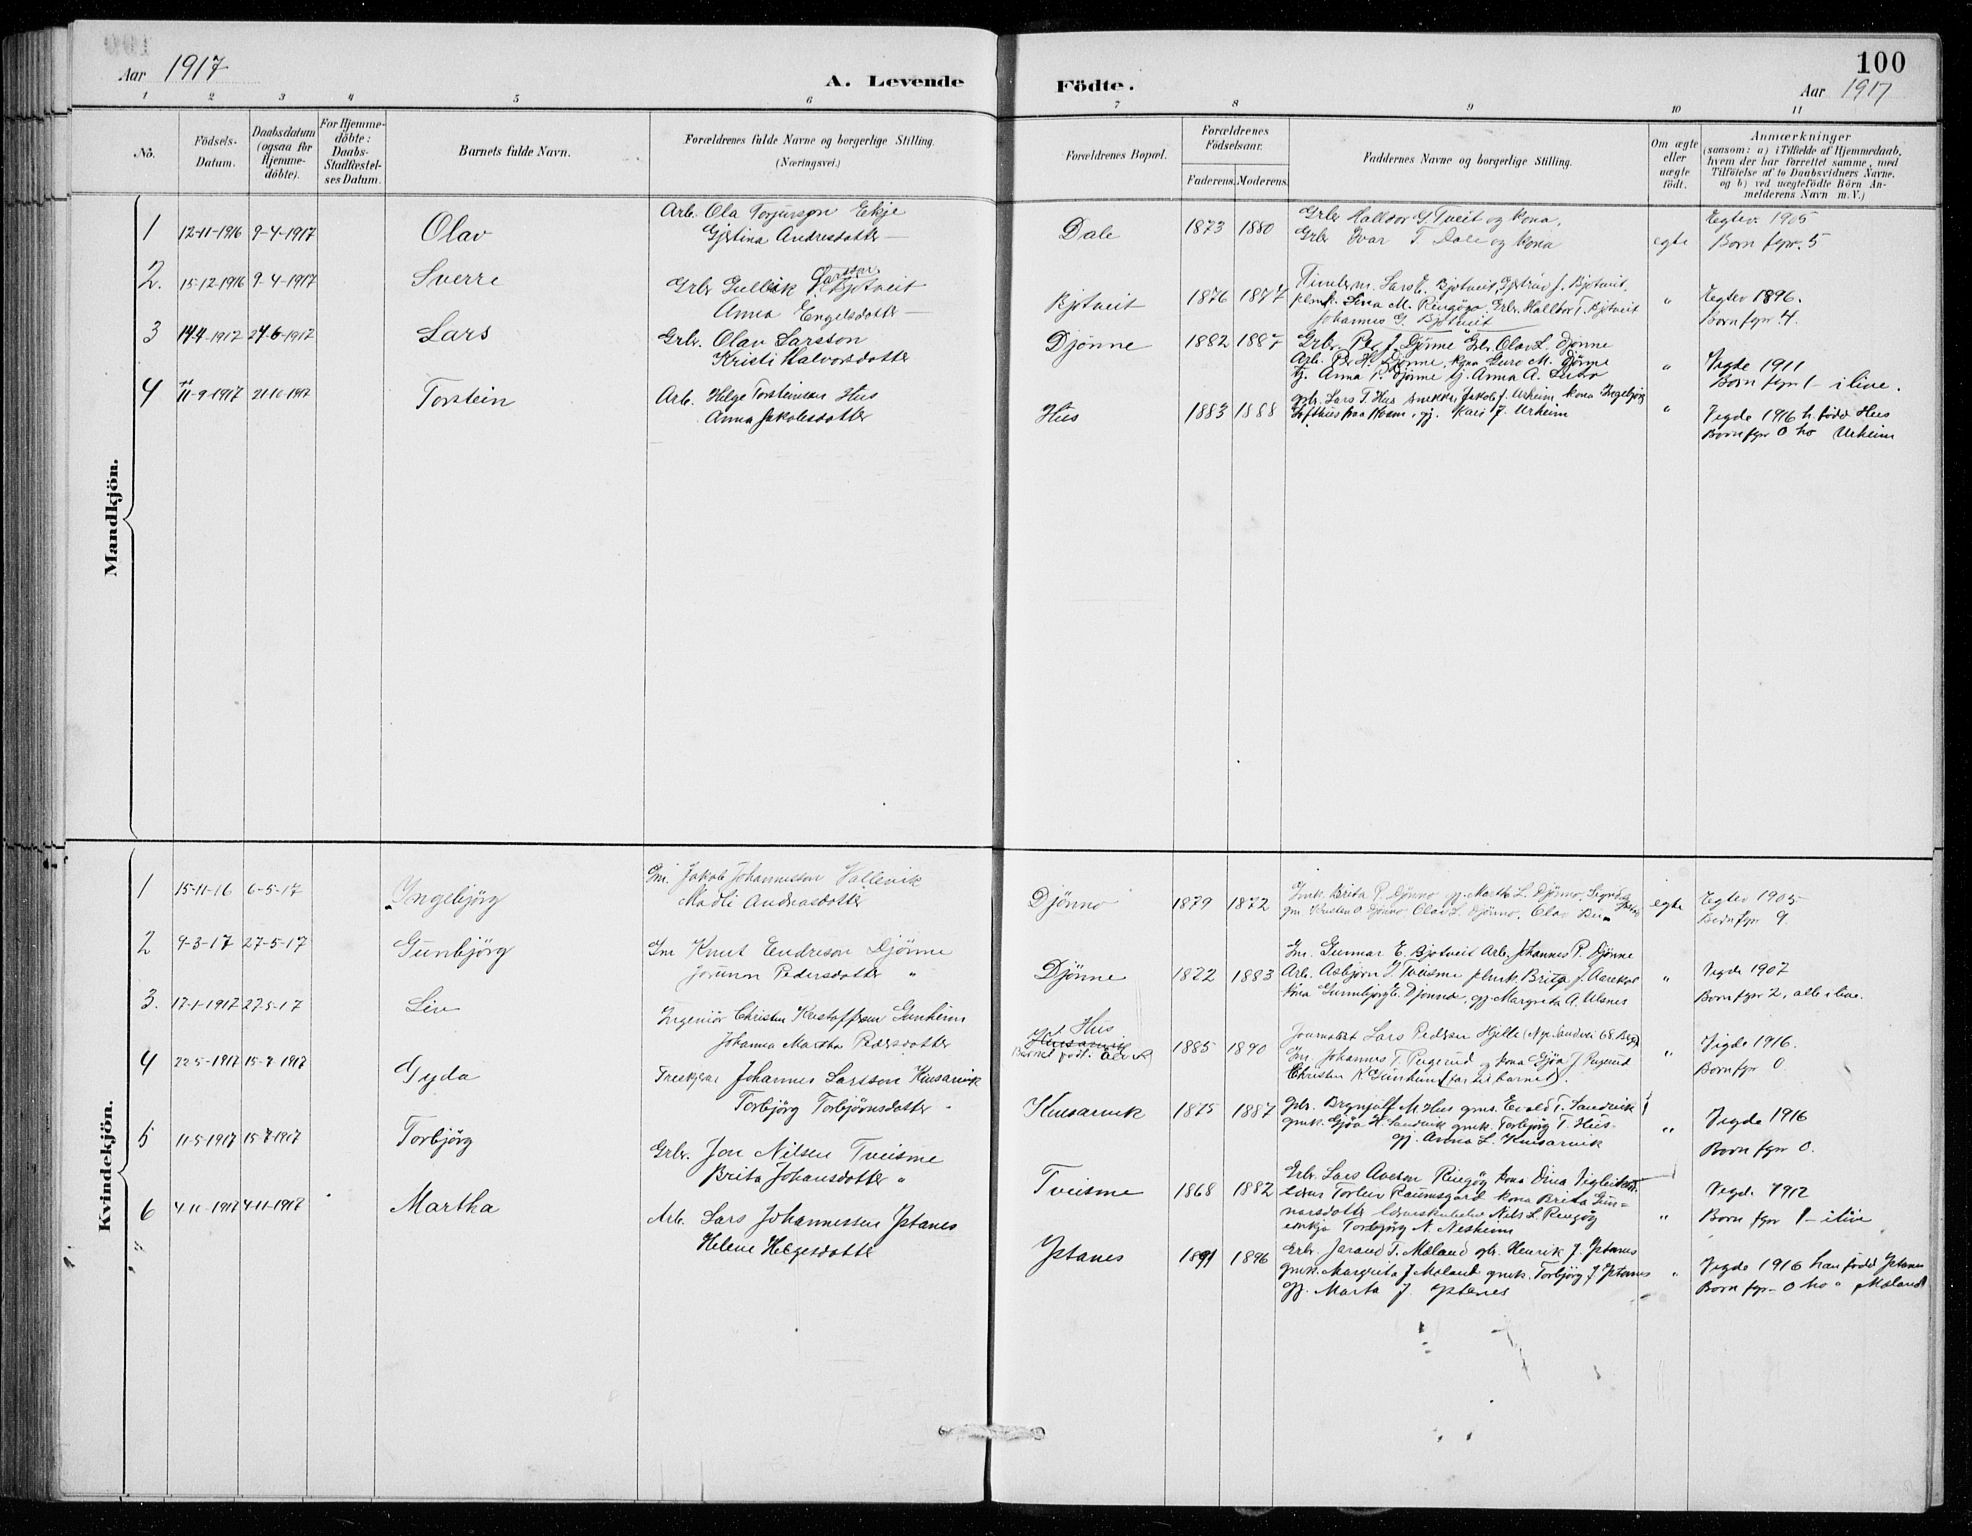 100
Aar 1917
A. Levende Födte.
Aar 1917
1 2 3 4 5 6 7 8 9 10 11
No.
Födsels-Datum.
Daabsdatum (ogsaa for Hjemme-döbte).
For Hjemme-döbte: Daabs-Stadfæstel-ses Datum.
Barnets fulde Navn.
Forældrenes fulde Navne og borgerlige Stilling. (Næringsvei.)
Forældrenes Bopæl.
Forældrenes Födselsaar.
Faderens. Moderens.
Faddernes Navne og borgerlige Stilling.
Om ægte eller uægte födt.
Anmærkninger
(saasom: a) i Tilfælde af Hjemmedaab, hvem der har forrettet samme, med Tilföielse af to Daabsvidners Navne, og b) ved uægtefödte Börn An-melderens Navn m. V.)
Mandkjön.
1 12-11-1916 9-4-1917 Olav
Arb. Ola Torjusson Eikje
Gjertina Andresdotter
Dale 1873 1880
Grbr Halldor G. Tveit og kona,
Grbr Ivar T. Dale og kona
egte
Egtev. 1905
Born fyr. 5
2. 15-12-1916 9-4-1917 Sverre
Grbr Gullik Larsson Bjotveit
Anna Engelsdotter
Bjotveit 1876 1877
Lars Bjotveit, J. Bjotveit,
Lina M. Ringöyo. Grbr. Halldor T. Bjotveit
Johannes G. Bjotveit
"
Egtev 1896.
Born fyr. 4.
3 14-4-1917 24-6-1917 Lars
Grbr. Olav Larsson
Kristi Halvorsdotter
Djönne 1882 1887
Grbr. Per J. Djönne Grbr. Olav L. Djönne
Arb. Per H. Djönne, kona Guro M. Djönne
tj. Anna P. Djönne tj. Anna A.
"
Vigde 1911
Born fyr 1 - i live.
4 11-9-1917 21-10-1917 Torstein
Arb. Helge Torsteinsen Hus
Anna Jakobsdotter
Hus 1883 1888
gbr. Lars T. Hus snekker Jakob J. Urheim kona Ingebjörg
Lofthus fraa gj. Kari J. Urheim
"
Vigde 1916 h. född Hus
Born fyr 0 ho Urheim
Kvindekjön.
1 15-11-16 6-5-17 Ingebjörg
Gm. Jakob Johannessen Vallevik
Madli Andreasdotter
Djönno 1879 1872
Brita P. Djönno gj. Martha L. Djönno,
gm Kristen O Djönno Olav L. Djönno, Olav
egte
Egtev 1905
Born fyr 9.
2 9-3-17 27-5-17 Gunbjörg
Gm Knut Endreson Djönne
Jorunn Pedersdotter "
Djönne 1872 1883
Gm. Gunnar E. Bjotveit Arb. Johannes P. Djönne
Arb. Asbjörn J. Tveisme Brita J. Aarekol
kona Gunnbjörg E. Djönne, gj. Margreta A. Ulsnes
"
Vigde 1907
Born fyr 2, alle i live.
3. 17-1-1917 27-5-17 Liv
Ingeniör Christen Kristoffersen Gunheim
Johanna Martha Pedersdotter
Hus
Barnet födt:
1885 1890
Journalist Lars Pedersen Hjelle
Gm. Johannes T. og kona Gjöa J.
Christen K. Gunheim (far til barnet).
"
Vigde 1916.
Born fyr 0
4 22-5-1917 15-7-1917 Gyda
Johannes Larsson Kinsarvik
Torbjörg Torbjörnsdotter
Kinsarvik 1875 1887
Gbr. Brynjulf M Hus gms. Evald T. Sandvik
gmk. Gjöa H. Sandvik gmk. Torbjörg T. Hus
gj. Anna L. Kinsarvik
"
Vigde 1916
Born fyr 0.
5 11-5-1917 15-7-1917 Torbjörg
Grbr. Jon Nilsen Tveisme
Brita Johansdotter "
Tveisme 1868 1882
Grbr. Lars Ringöy kona Dina
Torleiv kona Brita Gun-
narsdotter Nils L. Ringöy
enkja Torbjörg N. Nesheim
"
Vigde 1912
Born fyr 1 - i live
6 4-11-1917 Martha
Arb. Lars Johannessen Ystanes
Helene Helgesdotter
Ystanes 1891 1896
Grbr. T. Mæland gbr. Henrik J. Ystanes
gmk. Margreta J Mæland gmk. Torbjörg J Ystanes
gj. Marta J. Ystanes
"
Vigde 1916 han född Ystanes
Born fyr - 0 ho " Mæland